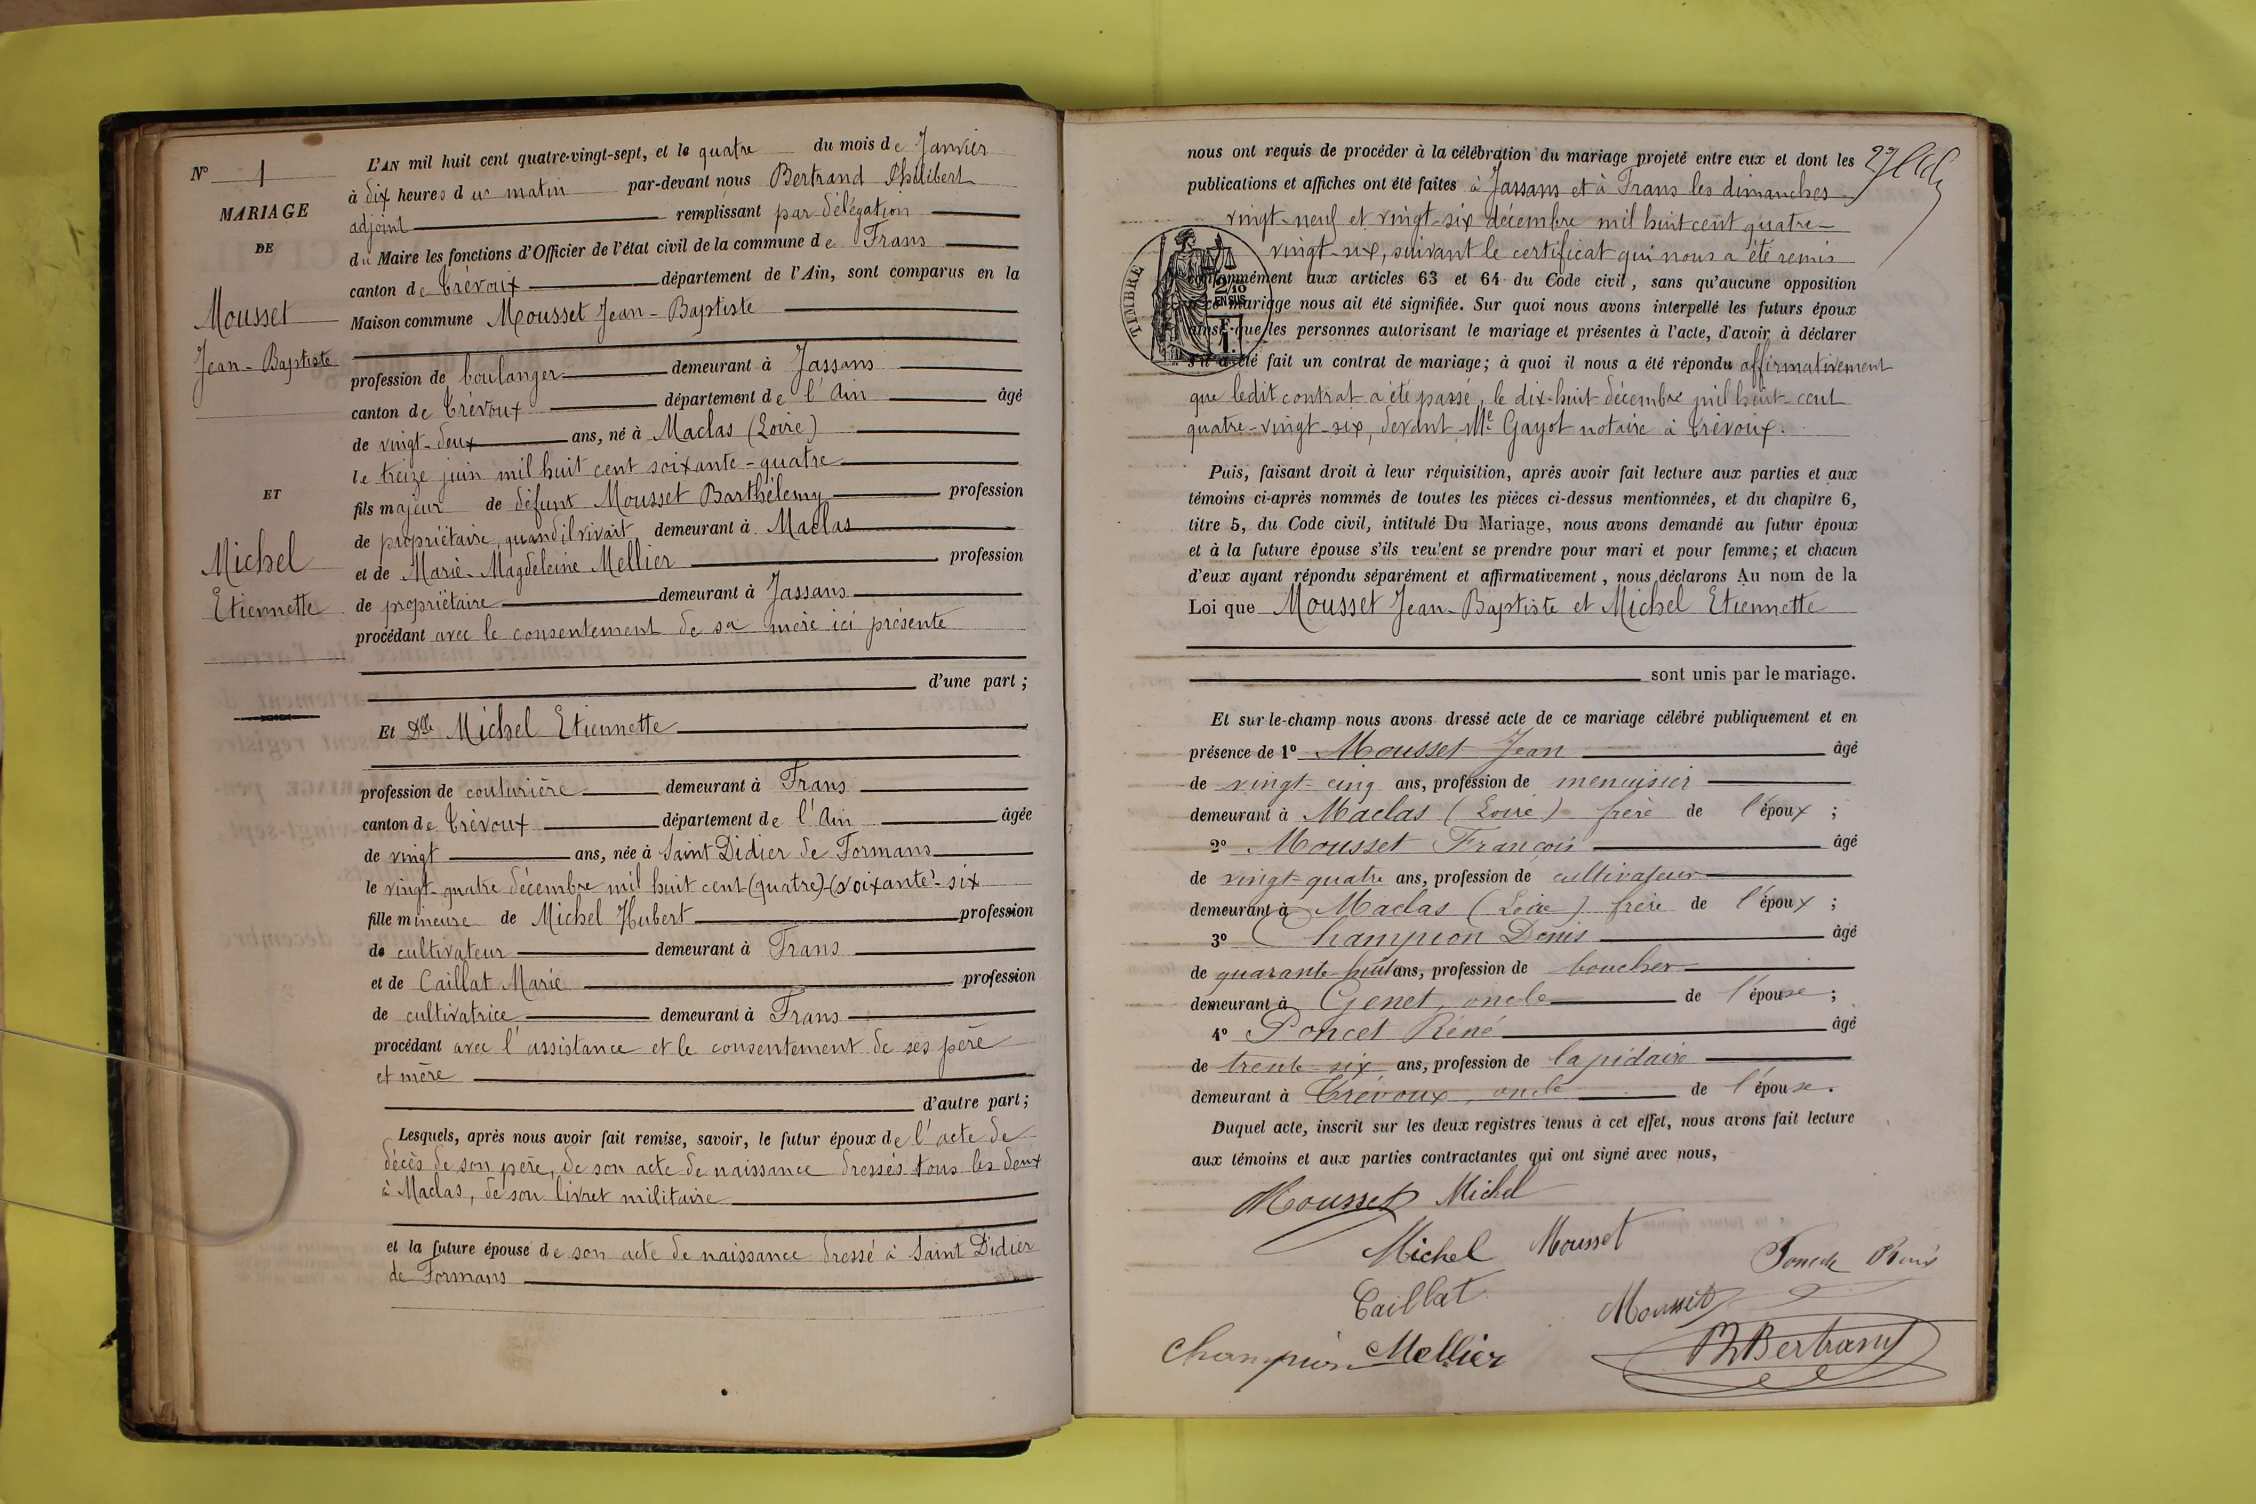 N° 1
MARIAGE
DE
Mousset
Jean-Baptiste
ET
Michel
Etiennette
L'AN mil huit cent quatre-vingt-sept, et le quatre du mois de Janvier
à dix heures du matin par-devant nous Bertrand Philibert
adjoint remplissant par délégation
du Maire les fonctions d'Officier de l'état civil de la commune de Frans
canton de Trévoux département de l'Ain, sont comparus en la
Maison commune Mousset Jean-Baptiste
profession de boulanger demeurant à Jassans
canton de Trévoux département de l'Ain âgé
de vingt-deux ans, né à Maclas (Loire)
le treize juin mil huit cent soixante-quatre
fils majeur de défunt Mousset Barthélemy profession
de propriétaire, quand il vivait demeurant à Maclas
et de Marie-Magdeleine Mellier profession
de propriétaire demeurant à Jassans
procédant avec le consentement de sa mère ici présente
d'une part ;
Et Dlle Michel Etiennette
profession de couturière demeurant à Frans
canton de Trévoux département de l'Ain âgée
de vingt ans, née à Saint Didier de Formans
le vingt-quatre décembre mil huit cent (quatre)-(soixante)-six
fille mineure de Michel Hubert profession
de cultivateur demeurant à Frans
et de Caillat Marie profession
de cultivatrice demeurant à Frans
procédant avec l'assistance et le consentement de ses père
et mère
d'autre part ;
Lesquels, après nous avoir fait remise, savoir, le futur époux de l'acte de
décès de son père, de son acte de naissance dressés tous les deux
à Maclas, de son livret militaire
et la future épouse de son acte de naissance dressé à Saint Didier
de Formans
nous ont requis de procéder à la célébration du mariage projeté entre eux et dont les
publications et affiches ont été faites à Jassans et à Frans les dimanches
vingt-neuf et vingt-six décembre mil huit cent quatre-
vingt-six, suivant le certificat qui nous a été remis
conformément aux articles 63 et 64 du Code civil, sans qu'aucune opposition
à ce mariage nous ait été signifiée. Sur quoi nous avons interpellé les futurs époux
ainsi que les personnes autorisant le mariage et présentes à l'acte, d'avoir à déclarer
s'il a été fait un contrat de mariage; à quoi il nous a été répondu affirmativement
que ledit contrat a été passé, le dix-huit décembre mil huit cent
quatre-vingt-six, devant Me Gayot notaire à Trévoux.
TIMBRE
2/10
EN SUS
F.
1.
Puis, faisant droit à leur réquisition, après avoir fait lecture aux parties et aux
témoins ci-après nommés de toutes les pièces ci-dessus mentionnées, et du chapitre 6,
titre 5, du Code civil, intitulé Du Mariage, nous avons demandé au futur époux
et à la future épouse s'ils veulent se prendre pour mari et pour femme; et chacun
d'eux ayant répondu séparément et affirmativement, nous déclarons Au nom de la
Loi que Mousset Jean-Baptiste et Michel Etiennette
sont unis par le mariage.
Et sur-le-champ nous avons dressé acte de ce mariage célébré publiquement et en
présence de 1° Mousset Jean âgé
de vingt-cinq ans, profession de menuisier
demeurant à Maclas (Loire) frère de l'époux ;
2° Mousset François âgé
de vingt-quatre ans, profession de cultivateur
demeurant à Maclas (Loire) frère de l'époux ;
3° Champion Denis âgé
de quarante-huit ans, profession de boucher
demeurant à Genet, oncle de l'épouse ;
4° Poncet Réné âgé
de trente-six ans, profession de lapidaire
demeurant à Trévoux, oncle de l'épouse.
Duquel acte, inscrit sur les deux registres tenus à cet effet, nous avons fait lecture
aux témoins et aux parties contractantes qui ont signé avec nous,
Mousset Michel
Michel Mousset
Poncet Réné
Caillat
Mousset
Champion Mellier
Ph Bertrand